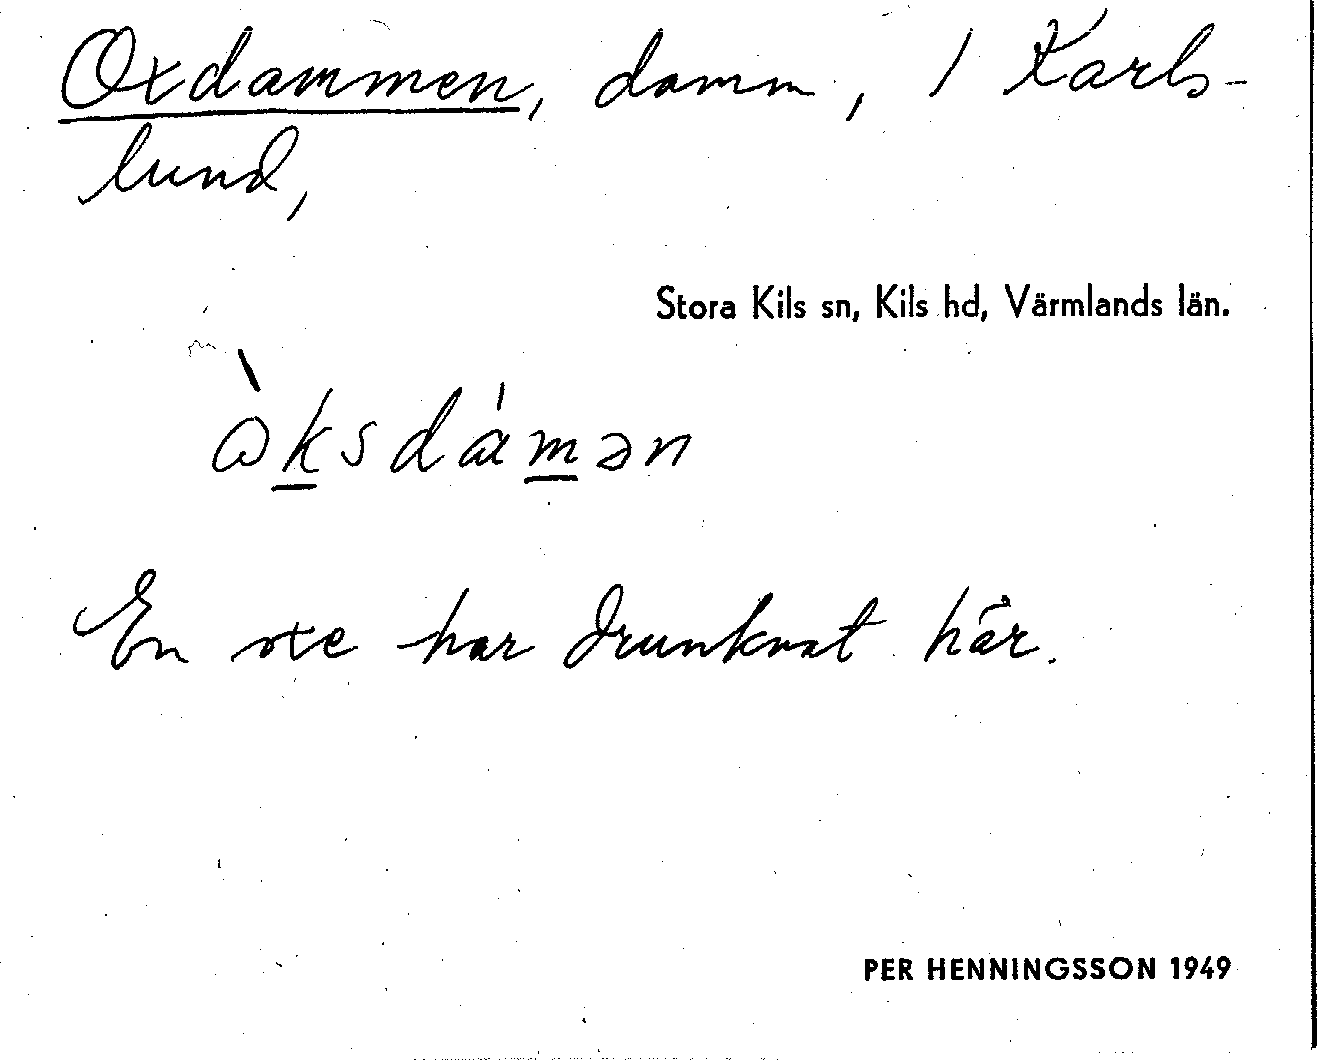 Oxdammen, damm, / Karls-
lund,
Stora Kils sn, Kils hd, Värmlands län.
En oxe har drunknat här.
PER HENNINGSSON 1949